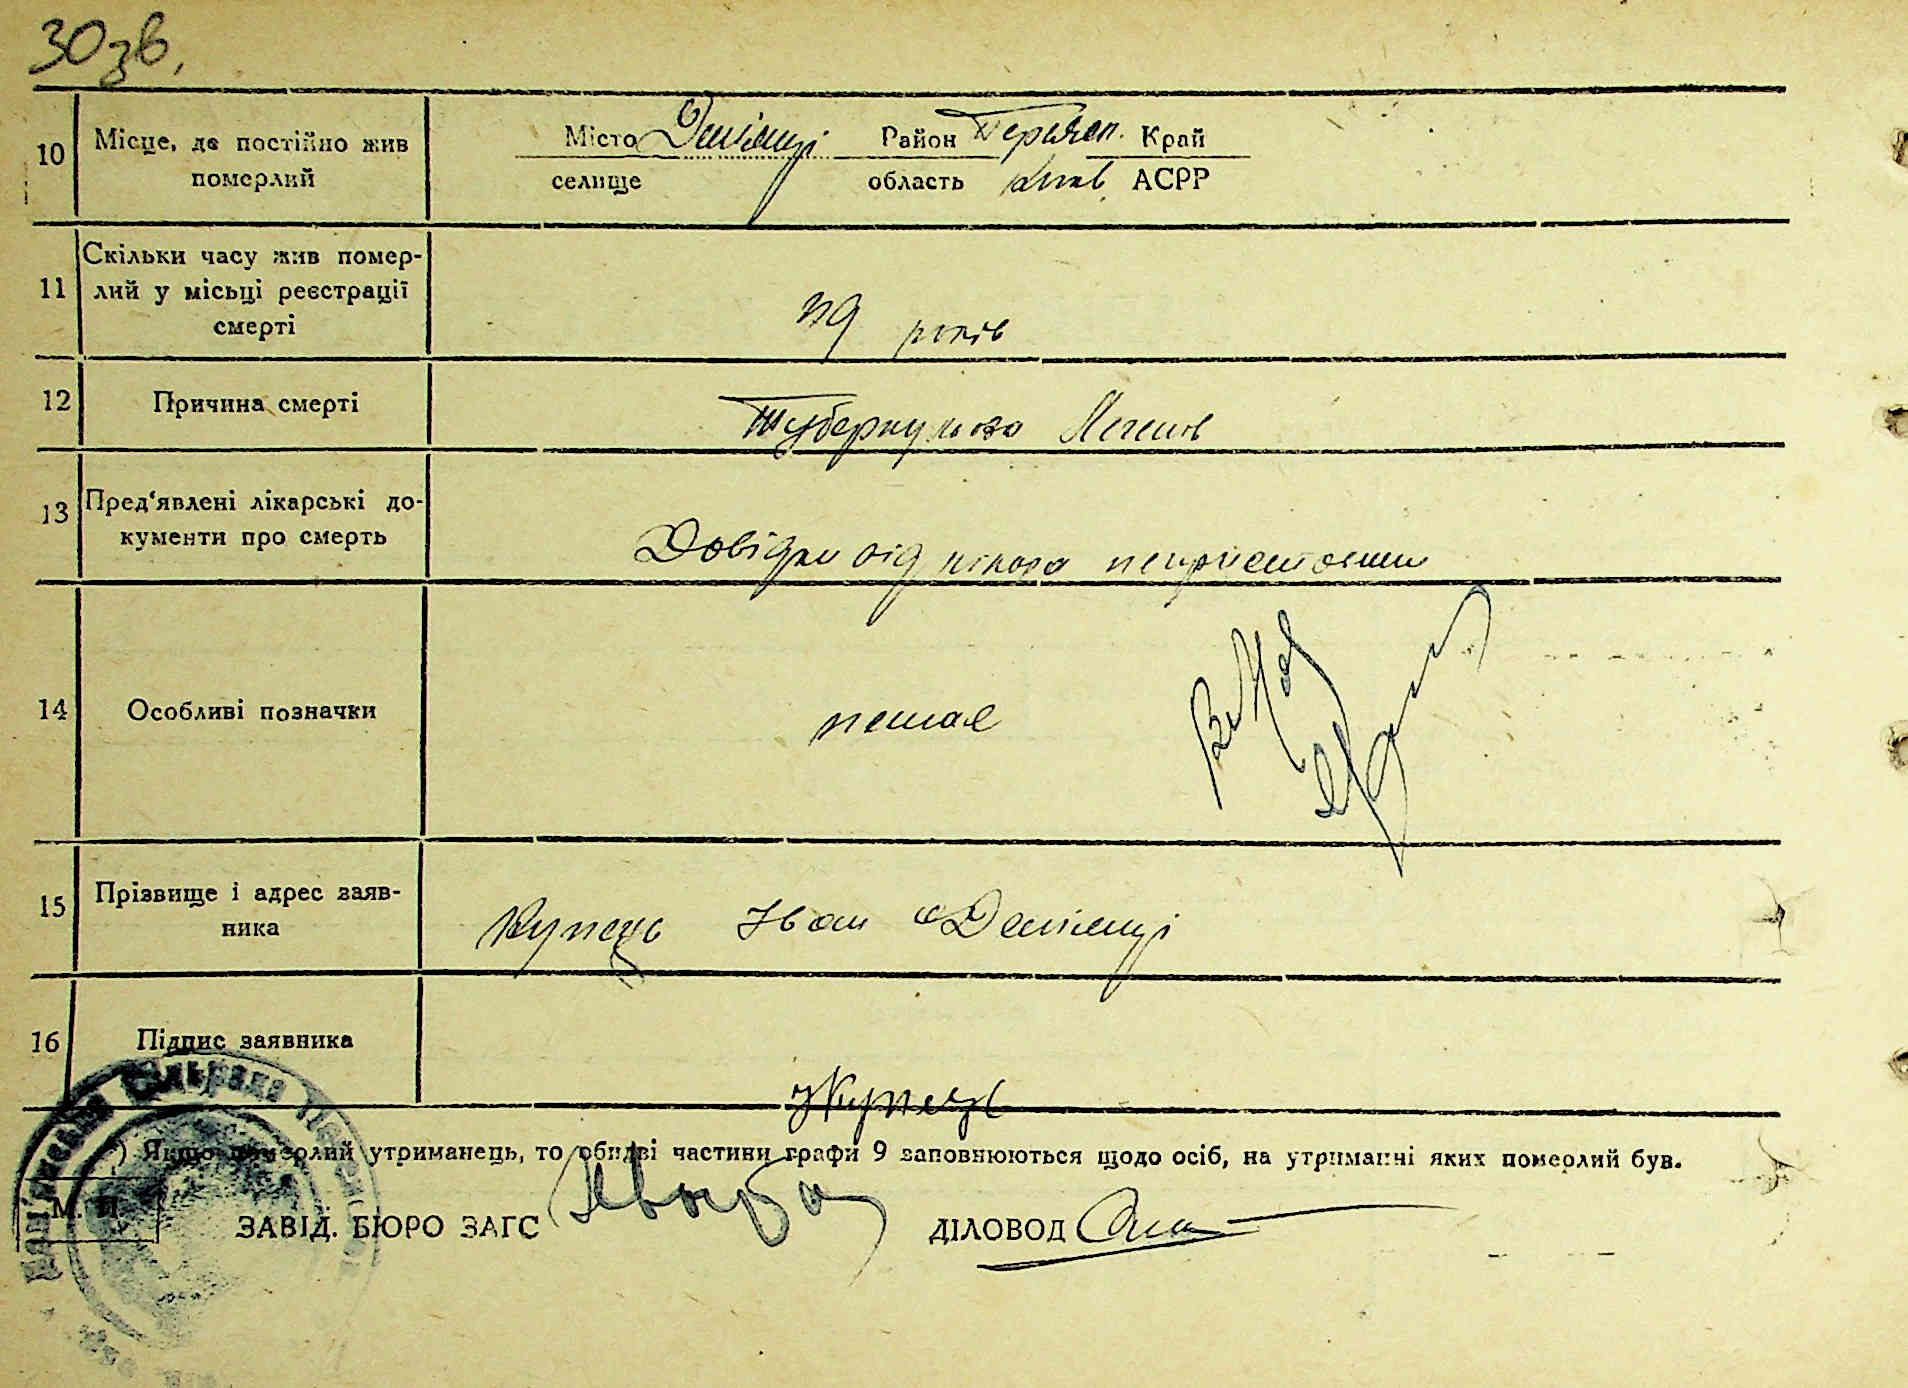 30зв.
10 Місце, де постійно жив померлий
Місто Демʼянці Район Переясл. Край
селище область Київ. АСРР
11 Скільки часу жив помер-
лий у місьці реєстрації
смерті
років
12 Причина смерті
Туберкульоза Легенів
13 Пред‘явлені лікарські до-
кументи про смерть
Довідка від
14 Особливі позначки
немає
15 Прізвище і адрес заяв-
ника
Купець Іван с Демʼянці
16 Підпис заявника
Купець
) Якщо померлий утриманець, то обидві частини графи 9 заповнюються щодо осіб, на утриманні яких померлий був.
М. П.
ЗАВІД. БЮРО ЗАГС
ДІЛОВОД